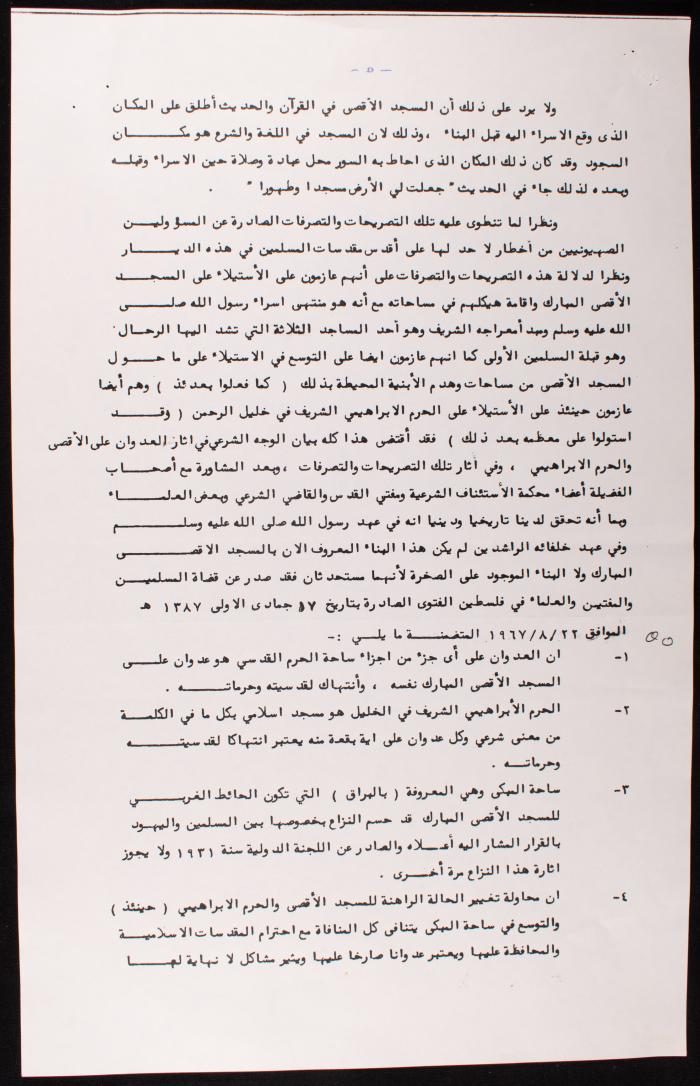 - ٥ -
ولا يرد على ذلك أن المسجد الأقصى في القرآن والحديث أطلق على المكان
الذى وقع الاسراء اليه قبل البناء ، وذلك لان المسجد في اللغة والشرع هو مكـــــان
السجود وقد كان ذلك المكان الذى احاط به السور محل عبادة وصلاة حين الاسراء وقبلـــه
وبعده لذلك جاء في الحديث " جعلت لي الأرض مسجدا وطهورا " .
ونظرا لما تنطوى عليه تلك التصريحات والتصرفات الصادرة عن المسؤوليـــن
الصهيونيين من أخطار لا حد لها على أقدس مقدسات المسلمين في هذه الديـــــار
ونظرا لدلالة هذه التصريحات والتصرفات على أنهم عازمون على الأستيلاء على المسجـــد
الأقصى المبارك واقامة هيكلهم في مساحاته مع أنه هو منتهى اسراء رسول الله صلـــى
الله عليه وسلم ومبدأ معراجه الشريف وهو أحد المساجد الثلاثة التي تشد اليها الرحال
وهو قبلة المسلمين الأولى كما انهم عازمون ايضا على التوسع في الاستيلاء على ما حـــول
المسجد الأقصى من مساحات وهدم الأبنية المحيطة بذلك ( كما فعلوا بعدئذ ) وهم أيضا
عازمون حينئذ على الأستيلاء على الحرم الابراهيمي الشريف في خليل الرحمن ( وقـــد
استولوا على معظمه بعد ذلك ) فقد أقتضى هذا كله بيان الوجه الشرعي في اثار العدوان على الأقصى
والحرم الابراهيمي ، وفي آثار تلك التصريحات والتصرفات ، وبعد المشاورة مع أصحـــاب
الفضيلة أعضاء محكمة الأستئناف الشرعية ومفتي القدس والقاضي الشرعي وبعض العلمـــاء
وبما أنه تحقق لدينا تاريخيا ودينيا انه في عهد رسول الله صلى الله عليه وسلـــــم
وفي عهد خلفائه الراشدين لم يكن هذا البناء المعروف الان بالمسجد الاقصـــــى
المبارك ولا البناء الموجود على الصخرة لأنهما مستحدثان فقد صدر عن قضاة المسلميـــن
والمفتيين والعلماء في فلسطين الفتوى الصادرة بتاريخ ١٧ جمادى الاولى ١٣٨٧ هـ
الموافق ١٩٦٧/٨/٢٢ المتضمنـــة ما يلـــي :-
١- ان العدوان على أى جزء من اجزاء ساحة الحرم القدسي هو عدوان علـــى
المسجد الأقصى المبارك نفسه ، وأنتهاك لقدسيته وحرماتـــــه .
٢- الحرم الأبراهيمي الشريف في الخليل هو مسجد اسلامي بكل ما في الكلمـــة
من معنى شرعي وكل عدوان على اية بقعة منه يعتبر انتهاكا لقدسيتـــــه
وحرماتـــه .
٣- ساحة المبكى وهي المعروفة ( بالبراق ) التي تكون الحائط الغربـــــي
للمسجد الأقصى المبارك قد حسم النزاع بخصوصها بين المسلمين واليهـود
بالقرار المشار اليه أعـــلاه والصادر عن اللجنة الدولية سنة ١٩٣١ ولا يجوز
اثارة هذا النزاع مرة أخـــرى .
٤- ان محاولة تغيير الحالة الراهنة للمسجد الأقصى والحرم الابراهيمي ( حينئذ )
والتوسع في ساحة المبكى يتنافى كل المنافاة مع احترام المقدسات الاسلاميـــة
والمحافظة عليها ويعتبر عدوانا صارخا عليها ويثير مشاكل لا نهاية لهـــــا